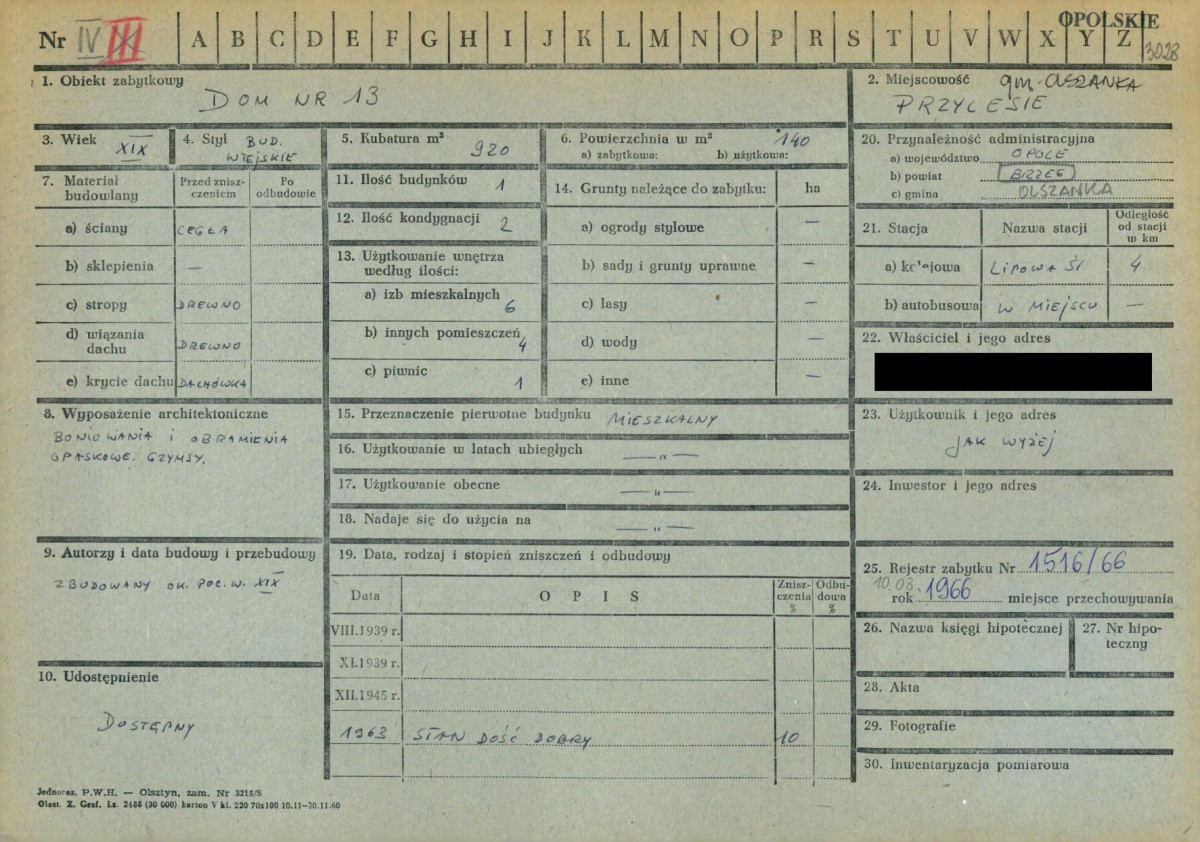 OPOLSKIE
Nr IV III A B C D E F G H I J K L M N O P R S T U V W X Y Z
3028
1. Obiekt zabytkowy
DOM NR 13
2. Miejscowość gm. OLSZANKA
PRZYLESIE
3. Wiek XIX
4. Styl BUD. WIEJSKIE
5. Kubatura m³ 920
6. Powierzchnia w m² 140
a) zabytkowa: b) użytkowa:
7. Materiał budowlany
Przed zniszczeniem
Po odbudowie
a) ściany CEGŁA
b) sklepienia —
c) stropy DREWNO
d) wiązania dachu DREWNO
e) krycie dachu DACHÓWKA
8. Wyposażenie architektoniczne
BONIOWANIA I OBRAMIENIA
OPASKOWE. GZYMSY.
9. Autorzy i data budowy i przebudowy
ZBUDOWANY OK. POŁ. W. XIX
10. Udostępnienie
DOSTĘPNY
11. Ilość budynków 1
12. Ilość kondygnacji 2
13. Użytkowanie wnętrza według ilości:
a) izb mieszkalnych 6
b) innych pomieszczeń 4
c) piwnic 1
14. Grunty należące do zabytku: ha
a) ogrody stylowe —
b) sady i grunty uprawne —
c) lasy —
d) wody —
e) inne —
15. Przeznaczenie pierwotne budynku MIESZKALNY
16. Użytkowanie w latach ubiegłych —"—
17. Użytkowanie obecne —"—
18. Nadaje się do użycia na —"—
19. Data, rodzaj i stopień zniszczeń i odbudowy
Data OPIS Zniszczenia % Odbudowa %
VIII.1939 r.
XI.1939 r.
XII.1945 r.
1963 STAN DOŚĆ DOBRY 10
20. Przynależność administracyjna
a) województwo OPOLE
b) powiat BRZEG
c) gmina OLSZANKA
21. Stacja Nazwa stacji Odległość od stacji w km
a) kolejowa LIPOWA ŚL 4
b) autobusowa W MIEJSCU —
22. Właściciel i jego adres
23. Użytkownik i jego adres
JAK WYŻEJ
24. Inwestor i jego adres
25. Rejestr zabytku Nr 1516/66
10.03. rok 1966 miejsce przechowywania
26. Nazwa księgi hipotecznej
27. Nr hipoteczny
28. Akta
29. Fotografie
30. Inwentaryzacja pomiarowa
Jednoraz. P.W.H. — Olsztyn, zam. Nr 3215/S
Olszt. Z. Graf. Lz. 2485 (30 000) karton V kl. 220 70x100 10.11—30.11.60